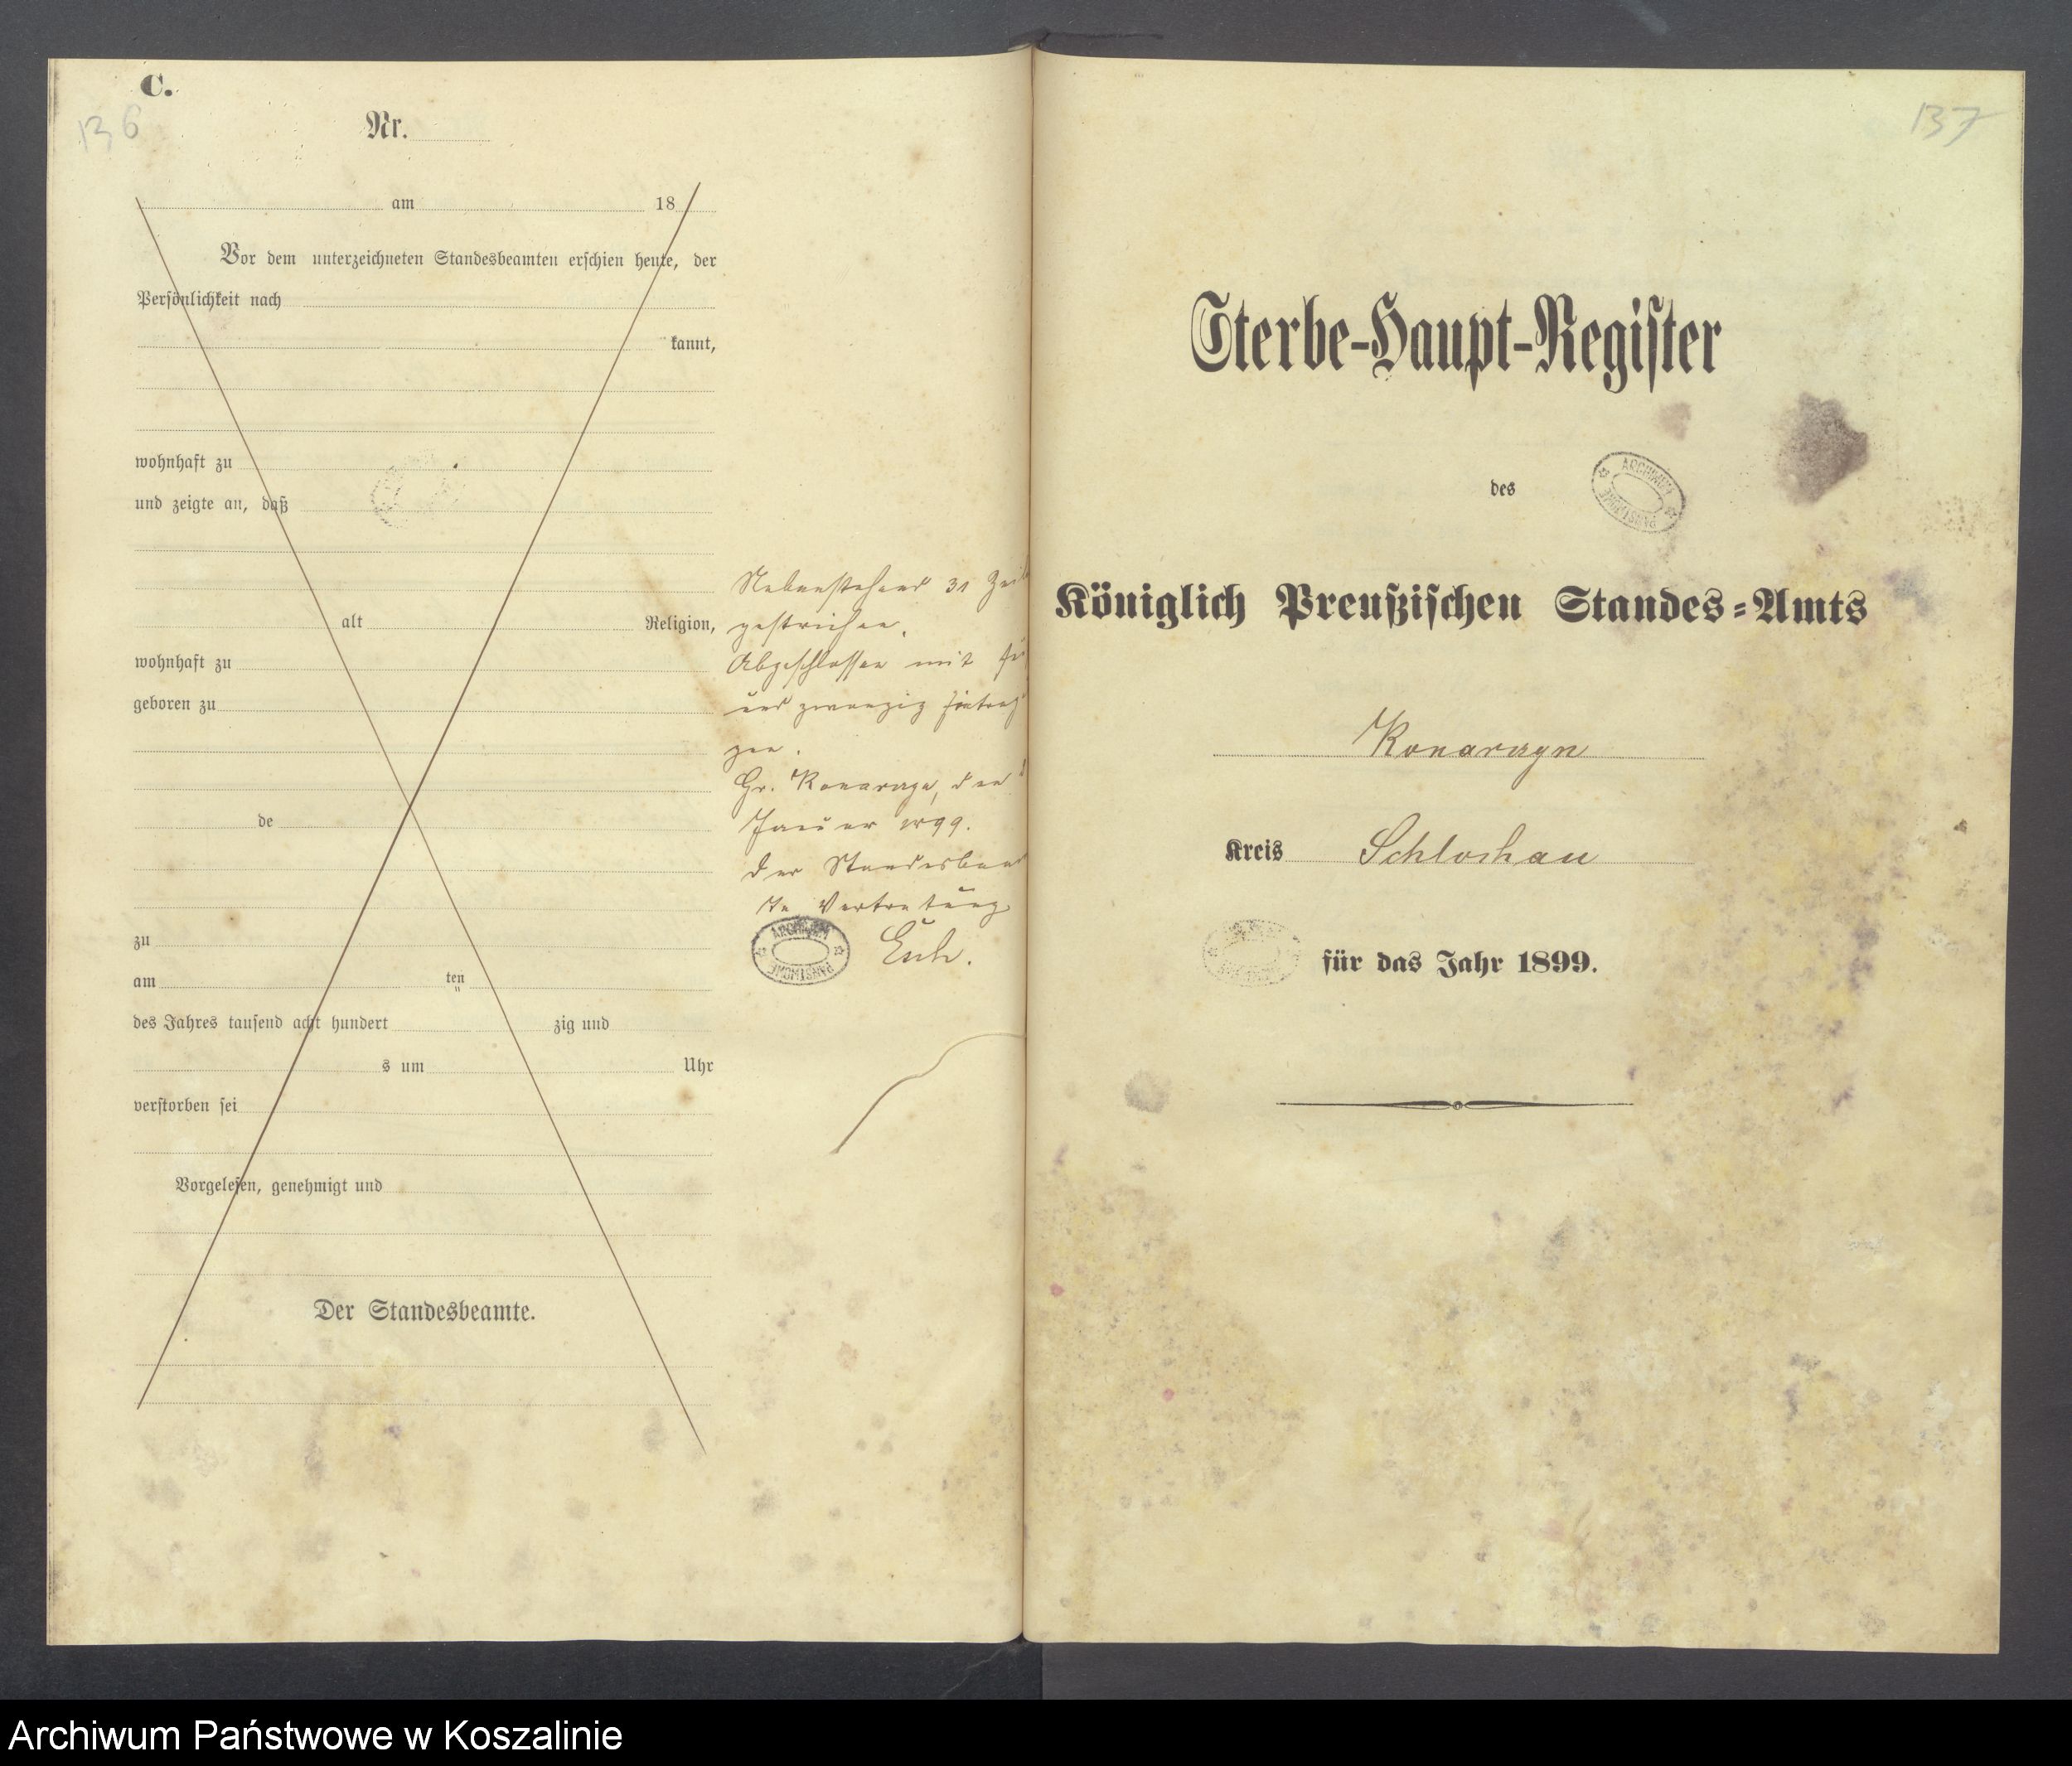 C.
136
Nr.
am 18
Vor dem unterzeichneten Standesbeamten erschien heute, der
Persönlichkeit nach
kannt,
wohnhaft zu
und zeigte an, daß
alt Religion,
wohnhaft zu
geboren zu
de
zu
am ten
des Jahres tausend acht hundert zig und
s um Uhr
verstorben sei
Vorgelesen, genehmigt und
Der Standesbeamte.
Nebenstehend 31
gestrichen.
Abgeschlossen mit
und zwanzig Eintra
gen.
Gr. Konarzyn, den
Januar 1899.
Der
In Vertretung
ARCHIWUM PAŃSTWOWE
137
Sterbe-Haupt-Register
des
ARCHIWUM PAŃSTWOWE
Königlich Preußischen Standes-Amts
Konarzyn
Kreis Schlochau
für das Jahr 1899.
Archiwum Państwowe w Koszalinie